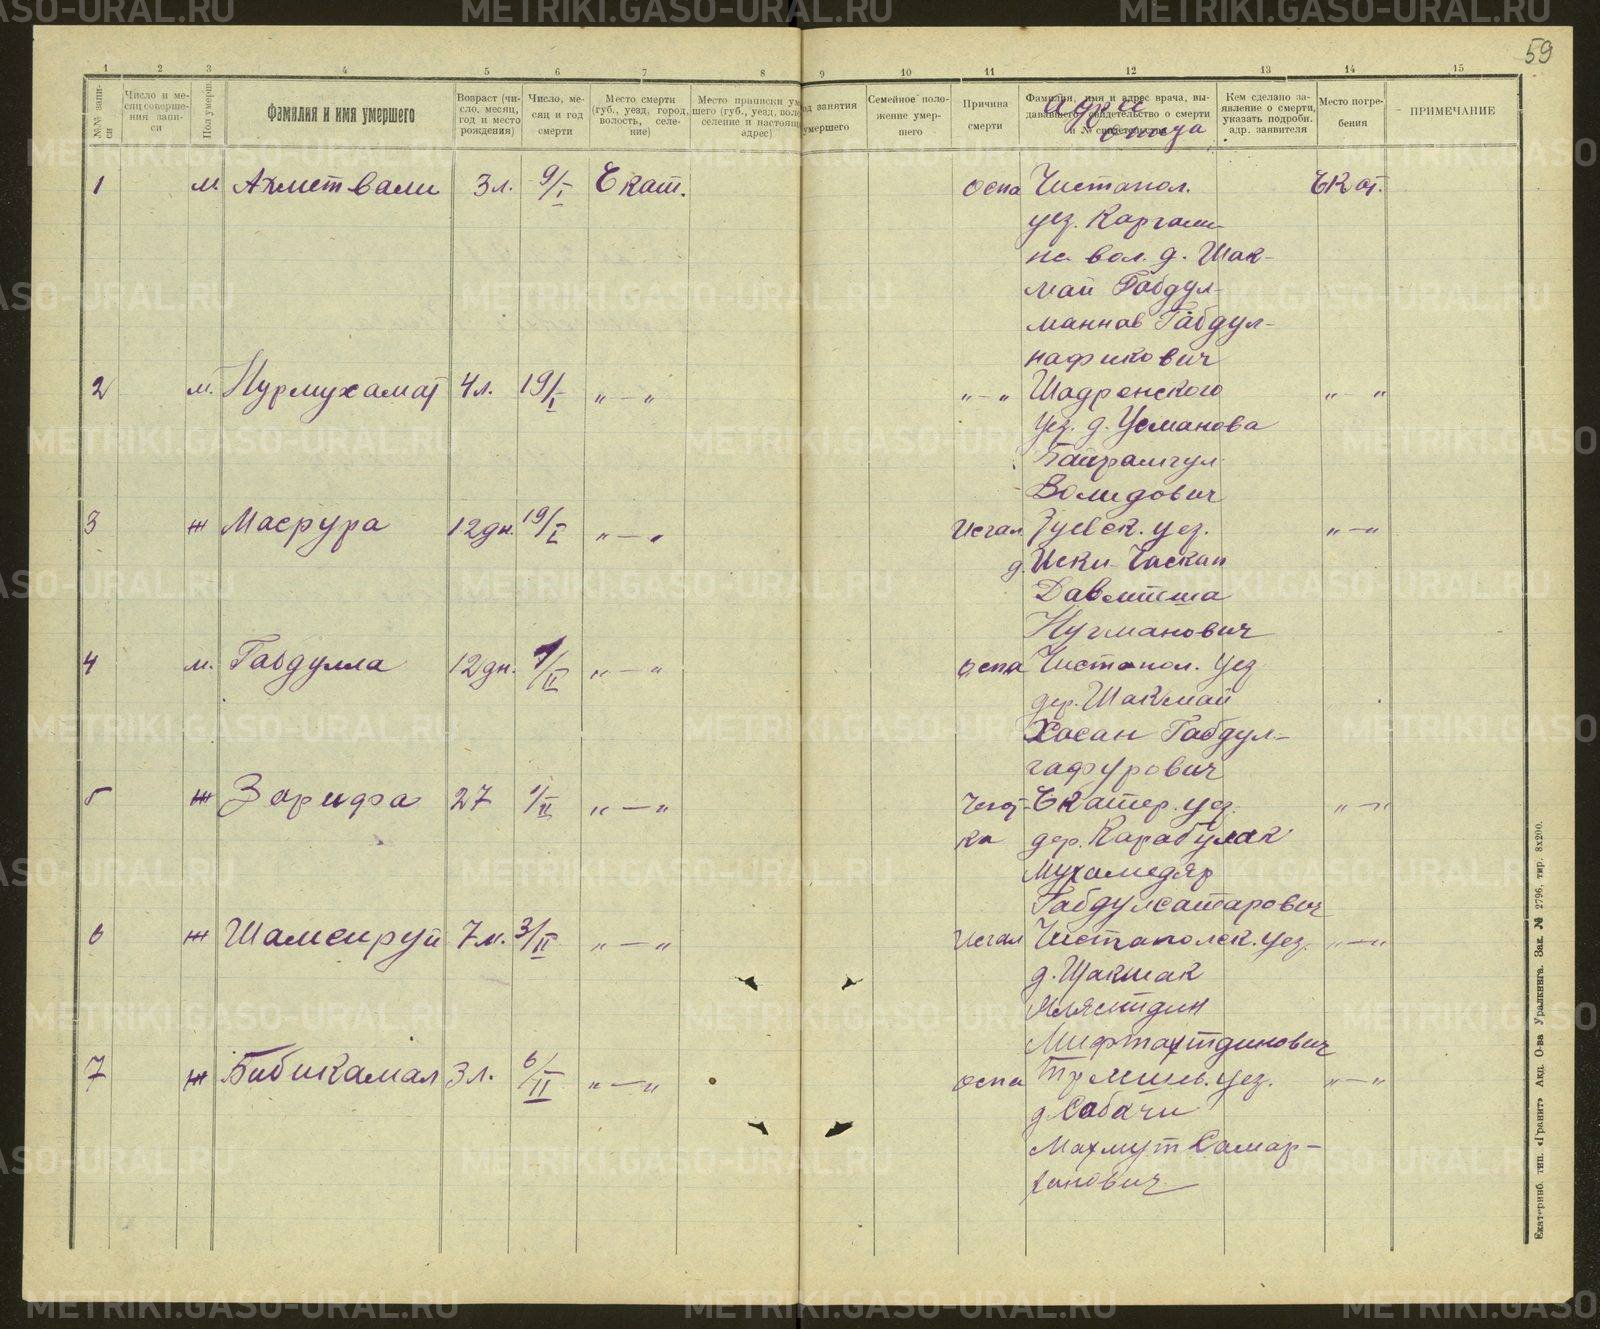 METRIKI.GASO-URAL.RU
59
1 2 3 4 5 6 7 8 9 10 11 12 13 14 15
№№ записи
Число и месяц совершения записи
Пол умерш
Фамилия и имя умершего
Возраст (число, месяц, год и место рождения)
Число, месяц и год смерти
Место смерти (губ., уезд, город, волость, селение)
Место приписки умершего (губ., уезд, воло селение и настоящ адрес)
од занятия умершего
Семейное положение умершего
Причина смерти
Фамилия, имя и адрес врача, выдававшего свидетельство о смерти и № свидетельства
Адрес отца
Кем сделано заявление о смерти, указать подробн. адр. заявителя
Место погребения
ПРИМЕЧАНИЕ
1 м. Ахметвали 3 л. 9/I Екат. оспа Чистопол. Екат.
уез. Каргали
на вол. д. Шах-
май Габдул-
маннав Габдул-
нафикович
2 м. Нурмухамат 4 л. 19/I „ — „ „ — „ Шадренского „ — „
уез. д. Усманова
Байрамгул
Валидович
3 ж Масрура 12 дн. 19/I „ — „ Исгал. уез. „ — „
д. Иски-
Давлетша
Нугманович
4 м. Габдулла 12 дн. 1/II „ — „ оспа Чистопол. уез
дер. Шахмай
Хасан Габдул-
гафурович
5 ж Зарифа 27 1/II „ — „ Чахот- Екатер. уез. „ — „
ка дер. Карабулак
Мухамедяр
Габдулсатарович
6 ж 7 м. 3/II „ — „ исгал Чистополск. уез. „ — „
д.
Мифтахтдинович
7 ж Бибикамал 3 л. 6/II „ — „ оспа уез. „ — „
д. Собачи
Махмут Самар-
ханович
Екатеринб. тип. «Гранит» Акц. О-ва Уралкнига. Зак. № 2796, тир. 8х200.